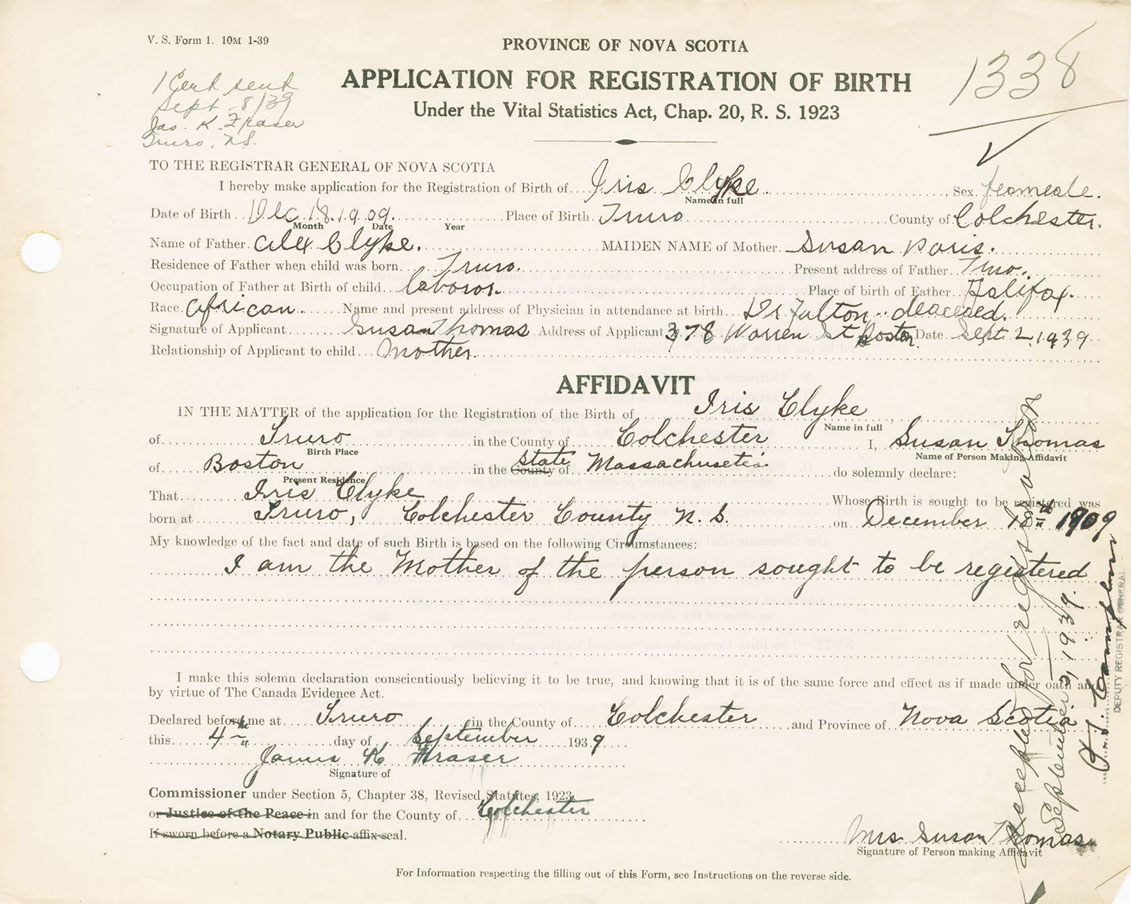 V. S. Form 1. 10M 1-39
PROVINCE OF NOVA SCOTIA
1338
APPLICATION FOR REGISTRATION OF BIRTH
Under the Vital Statistics Act, Chap. 20, R. S. 1923
1 Cert sent
Sept 8/39
Jas. K. Fraser
Truro, N.S.
TO THE REGISTRAR GENERAL OF NOVA SCOTIA
I hereby make application for the Registration of Birth of Iris Clyke, Sex. feameale.
Name in full
Date of Birth Dec. 18. 1909. Place of Birth Truro County of Colchester.
Month Date Year
Name of Father Alex Clyke. MAIDEN NAME of Mother Susan Paris.
Residence of Father when child was born Truro. Present address of Father Truro.
Occupation of Father at Birth of child laborer. Place of birth of Father Halifax.
Race African Name and present address of Physician in attendance at birth Dr. Fulton deaceed.
Signature of Applicant Susan Thomas Address of Applicant 378 Warren St Boston Date Sept. 2 1939
Relationship of Applicant to child Mother.
AFFIDAVIT
IN THE MATTER of the application for the Registration of the Birth of Iris Clyke
Name in full
of Truro in the County of Colchester I, Susan Thomas
Birth Place Name of Person Making Affidavit
of Boston in the State County of Massachusetts. do solemnly declare:
Present Residence
That Iris Clyke Whose Birth is sought to be registered was
born at Truro, Colchester County N.S. on December 18th 1909
My knowledge of the fact and date of such Birth is based on the following Circumstances:
I am the Mother of the person sought to be registered
I make this solemn declaration conscientiously believing it to be true, and knowing that it is of the same force and effect as if made under oath and
by virtue of The Canada Evidence Act.
Declared before me at Truro in the County of Colchester and Province of Nova Scotia
this 4th day of September 1939
James K Fraser
Signature of
Commissioner under Section 5, Chapter 38, Revised Statutes, 1923
or Justice of the Peace in and for the County of Colchester
If sworn before a Notary Public affix seal.
Mrs Susan Thomas
Signature of Person making Affidavit
For Information respecting the filling out of this Form, see Instructions on the reverse side.
Accepted for registration
September 5, 1939.
DEPUTY REGISTRAR GENERAL